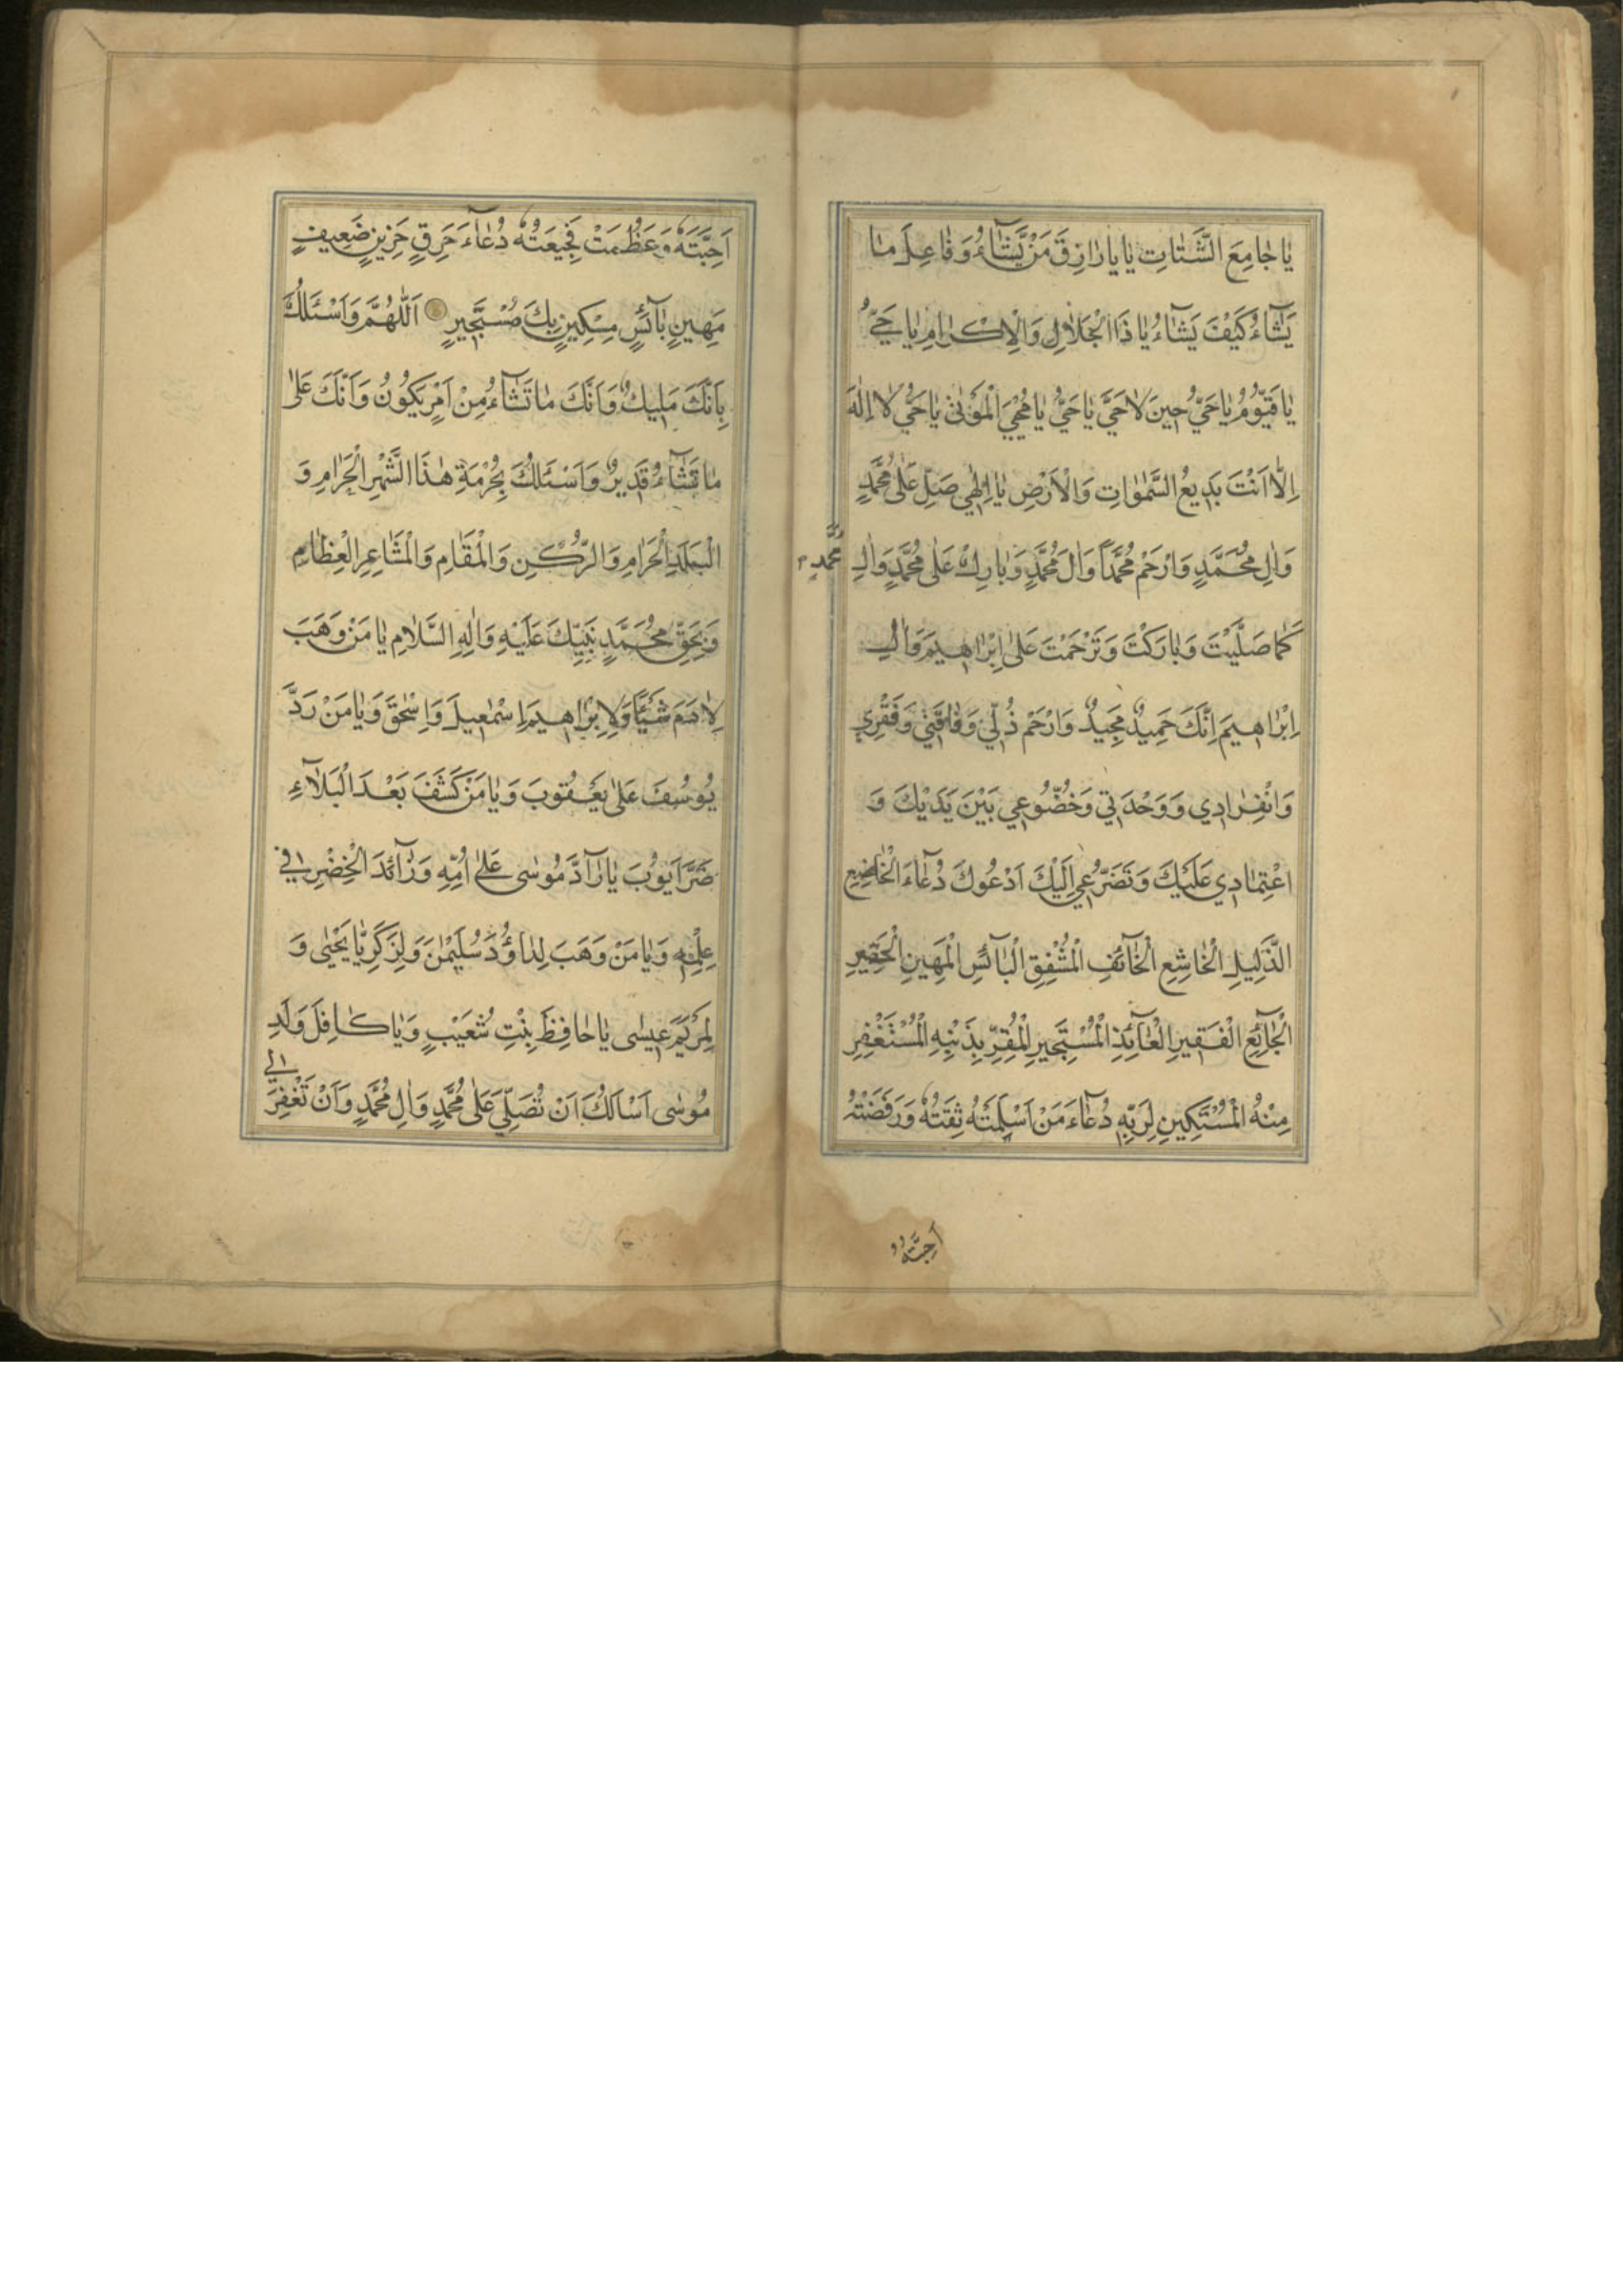 يَا جَامِعَ الشَّتَاتِ يَا يَا رَازِقَ مَنْ يَشَآءُ وَفَاعِلَ مَا
يَشَآءُ كَيْفَ يَشَآءُ يَا ذَا الْجَلَالِ وَالْاِكْرَامِ يَا حَيُّ
يَا قَيُّومُ يَا حَيُّ حِينَ لَا حَيَّ يَا حَيُّ يَا مُحْيِيَ الْمَوْتٰى يَا حَيُّ لَا اِلٰهَ
اِلَّا اَنْتَ بَدِيعُ السَّمٰوَاتِ وَالْاَرْضِ يَا اِلٰهِي صَلِّ عَلٰى مُحَمَّدٍ
وَاٰلِ مُحَمَّدٍ وَارْحَمْ مُحَمَّدًا وَاٰلَ مُحَمَّدٍ وَبَارِكْ عَلٰى مُحَمَّدٍ وَاٰلِ
مُحَمَّدٍ
كَمَا صَلَّيْتَ وَبَارَكْتَ وَتَرَحَّمْتَ عَلٰى اِبْرَاهِيمَ وَاٰلِ
اِبْرَاهِيمَ اِنَّكَ حَمِيدٌ مَجِيدٌ وَارْحَمْ ذُلِّي وَفَاقَتِي وَفَقْرِي
وَانْفِرَادِي وَوَحْدَتِي وَخُضُوعِي بَيْنَ يَدَيْكَ وَ
اعْتِمَادِي عَلَيْكَ وَتَضَرُّعِي اِلَيْكَ اَدْعُوكَ دُعَآءَ الْخَاضِعِ
الذَّلِيلِ الْخَاشِعِ الْخَآئِفِ الْمُشْفِقِ الْبَآئِسِ الْمَهِينِ الْحَقِيرِ
الْجَآئِعِ الْفَقِيرِ الْعَآئِذِ الْمُسْتَجِيرِ الْمُقِرِّ بِذَنْبِهِ الْمُسْتَغْفِرِ
مِنْهُ الْمُسْتَكِينِ لِرَبِّهِ دُعَآءَ مَنْ اَسْلَمَتْهُ ثِقَتُهُ وَرَفَضَتْهُ
اَحِبَّتُهُ
اَحِبَّتُهُ وَعَظُمَتْ فَجِيعَتُهُ دُعَآءَ حَرِقٍ حَزِينٍ ضَعِيفٍ
مَهِينٍ بَآئِسٍ مِسْكِينٍ بِكَ مُسْتَجِيرٍ اَللّٰهُمَّ وَاَسْئَلُكَ
بِاَنَّكَ مَلِيكٌ وَاَنَّكَ مَا تَشَآءُ مِنْ اَمْرٍ يَكُونُ وَاَنَّكَ عَلٰى
مَا تَشَآءُ قَدِيرٌ وَاَسْئَلُكَ بِحُرْمَةِ هٰذَا الشَّهْرِ الْحَرَامِ وَ
الْبَلَدِ الْحَرَامِ وَالرُّكْنِ وَالْمَقَامِ وَالْمَشَاعِرِ الْعِظَامِ
وَبِحَقِّ مُحَمَّدٍ نَبِيِّكَ عَلَيْهِ وَاٰلِهِ السَّلَامُ يَا مَنْ وَهَبَ
لِاٰدَمَ شَيْئًا وَلِاِبْرَاهِيمَ اِسْمٰعِيلَ وَاِسْحٰقَ وَيَا مَنْ رَدَّ
يُوسُفَ عَلٰى يَعْقُوبَ وَيَا مَنْ كَشَفَ بَعْدَ الْبَلَآءِ
ضُرَّ اَيُّوبَ يَا رَآدَّ مُوسٰى عَلٰى اُمِّهِ وَزَآئِدَ الْخِضْرِ فِي
عِلْمِهِ وَيَا مَنْ وَهَبَ لِدَاوُدَ سُلَيْمٰنَ وَلِزَكَرِيَّا يَحْيٰى وَ
لِمَرْيَمَ عِيسٰى يَا حَافِظَ بِنْتِ شُعَيْبٍ وَيَا كَافِلَ وَلَدِ
مُوسٰى اَسْاَلُكَ اَنْ تُصَلِّيَ عَلٰى مُحَمَّدٍ وَاٰلِ مُحَمَّدٍ وَاَنْ تَغْفِرَ
لِي